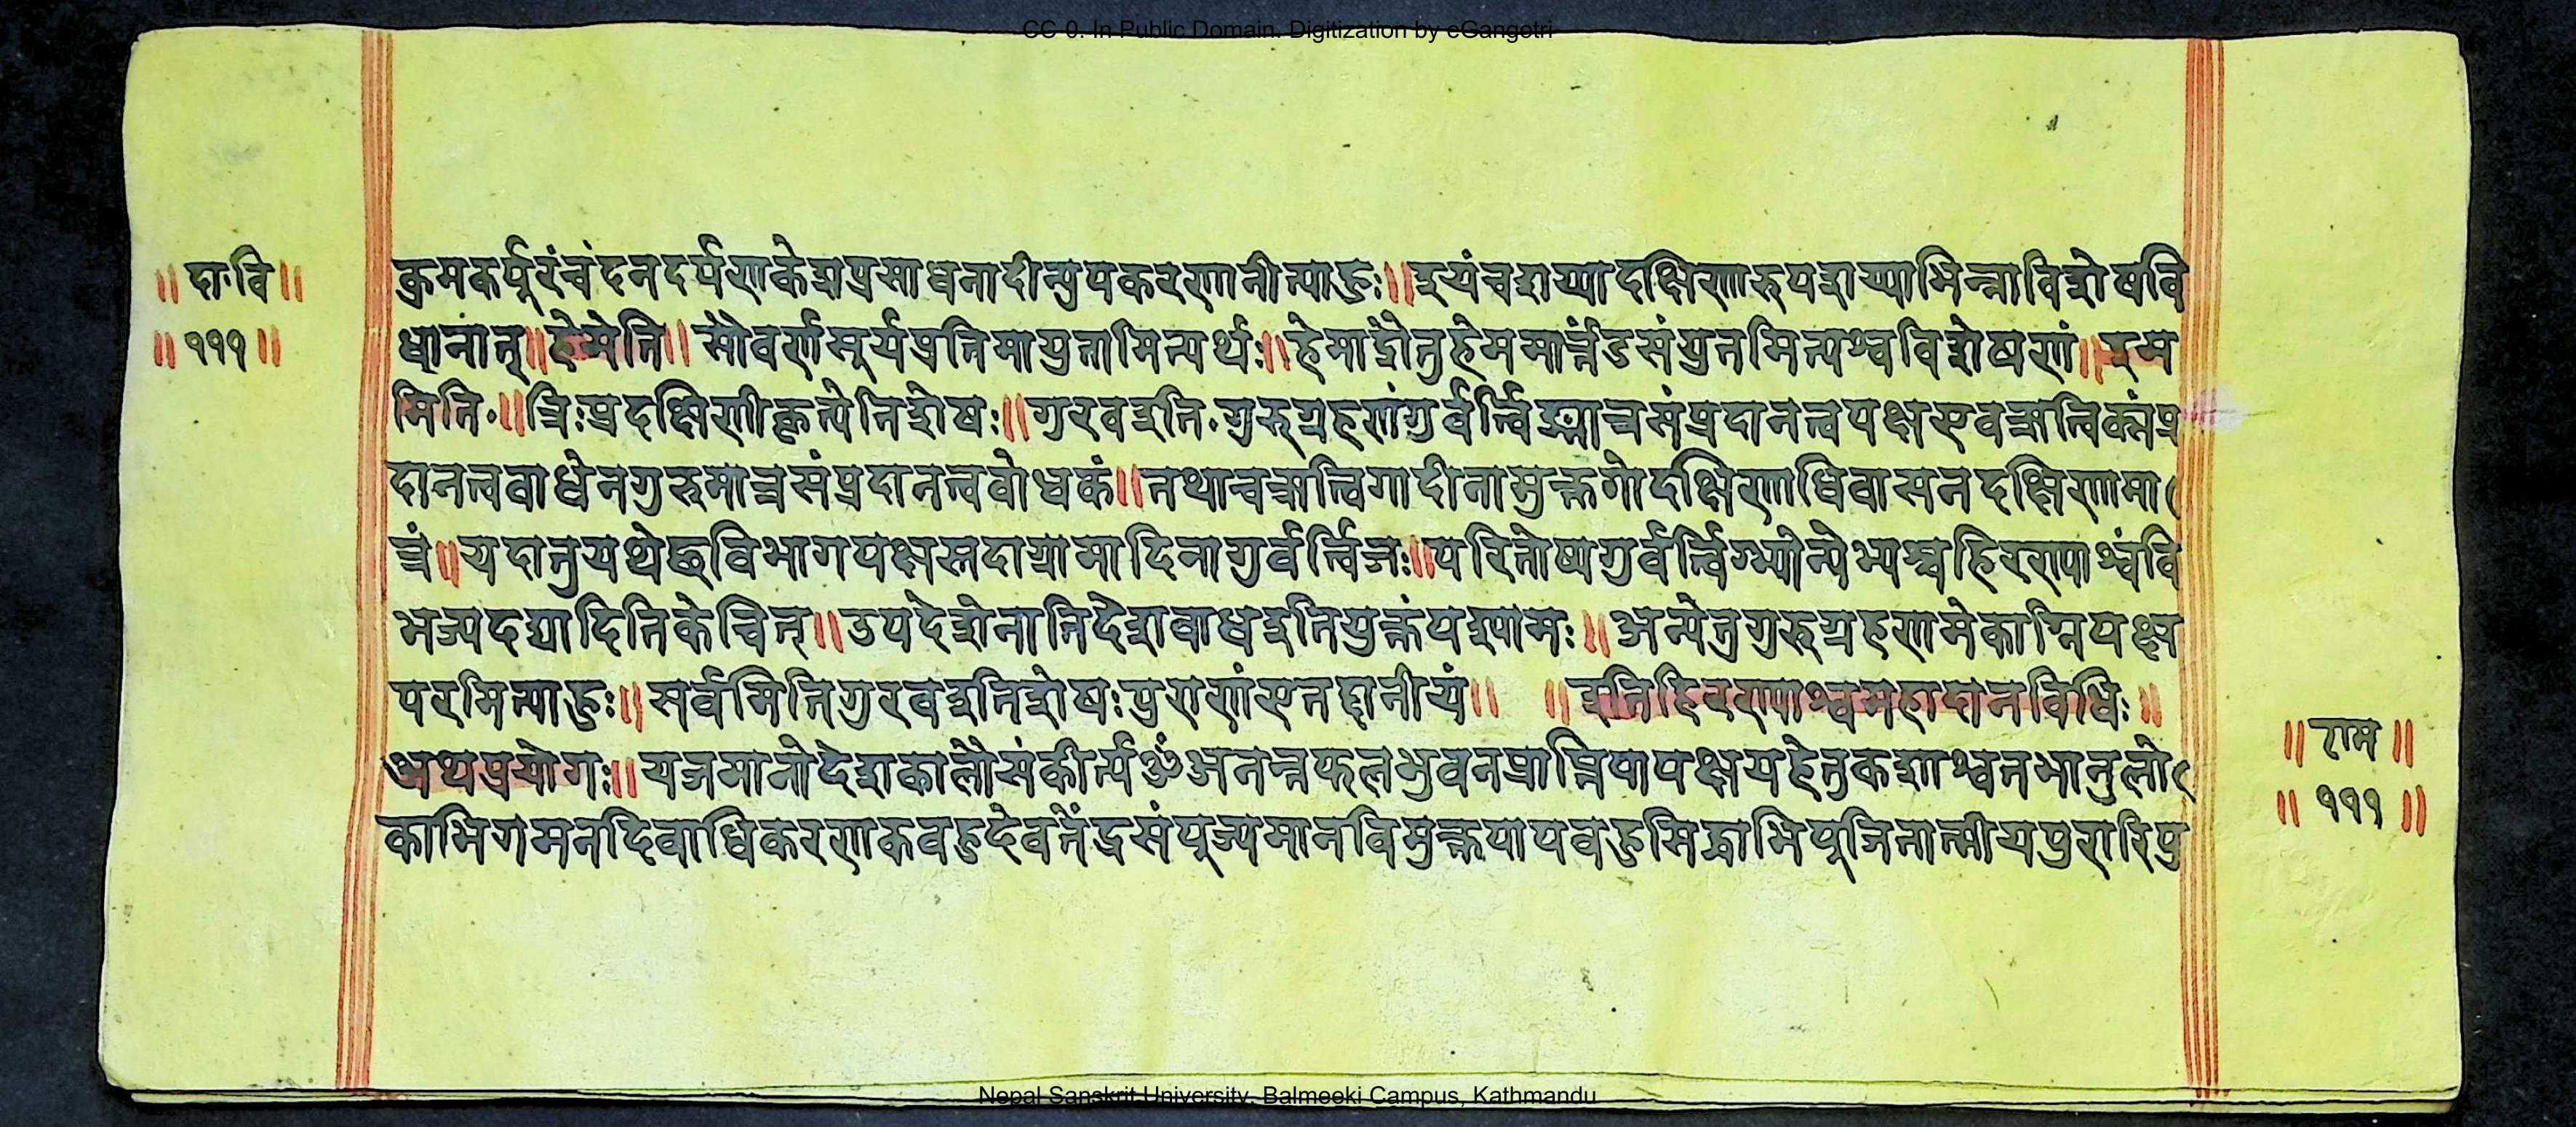 CC-0. In Public Domain. Digitization by eGangotri
॥ दा॰वि ॥
॥ १११ ॥
क्रमकर्पूरंचंदनदर्पणकेशप्रसाधनादीन्युपकरणानीत्याहुः॥इयंचशय्यादक्षिणारुपशय्याभिन्नाविशेषवि
धानात्॥हेमेति॥सौवर्णसूर्यप्रतिमायुतामित्यर्थः॥हेमाद्रौतुहेममार्त्तंडसंयुतमित्यश्वविशेषणं॥इम
मिति॰॥त्रिःप्रदक्षिणीकृत्येतिशेषः॥गुरवइति॰गुरुग्रहणंगुर्वर्त्त्विङ्मात्रसंप्रदानत्वपक्षएवऋत्विक्संप्र
दानत्वबाधेनगुरुमात्रसंप्रदानत्वबोधकं॥तथाचऋत्विगादीनामुक्तगोदक्षिणाधिवासनदक्षिणामा
त्रं॥यदातुयथेछविभागपक्षस्तदाग्रामादिनागुर्वर्त्त्विजः॥परितोष्यगुर्वर्त्त्विग्भ्योन्येभ्यश्चहिरण्याश्वंवि
भज्यदद्यादितिकेचित्॥उपदेशेनातिदेशबाधइतियुक्तंपश्यामः॥अन्येतुगुरुग्रहणमेकाग्निपक्ष
परमित्याहुः॥सर्वमितिगुरवइतिशेषःपुराणंएतद्दानीयं॥ ॥इतिहिरण्याश्वमहादानविधिः॥
अथप्रयोगः॥यजमानोदेशकालौसंकीर्त्यॐअनन्तफलभुवनप्राप्तिपापक्षयहेतुकशाश्वतभानुलो
काभिगमनदिवाधिकरणकबहुदेवतेंद्रसंपूज्यमानविमुक्तपापबहुसिद्धाभिपूजितात्मीयपुरारिपु
॥ राम ॥
॥ १११ ॥
Nepal Sanskrit University, Balmeeki Campus, Kathmandu